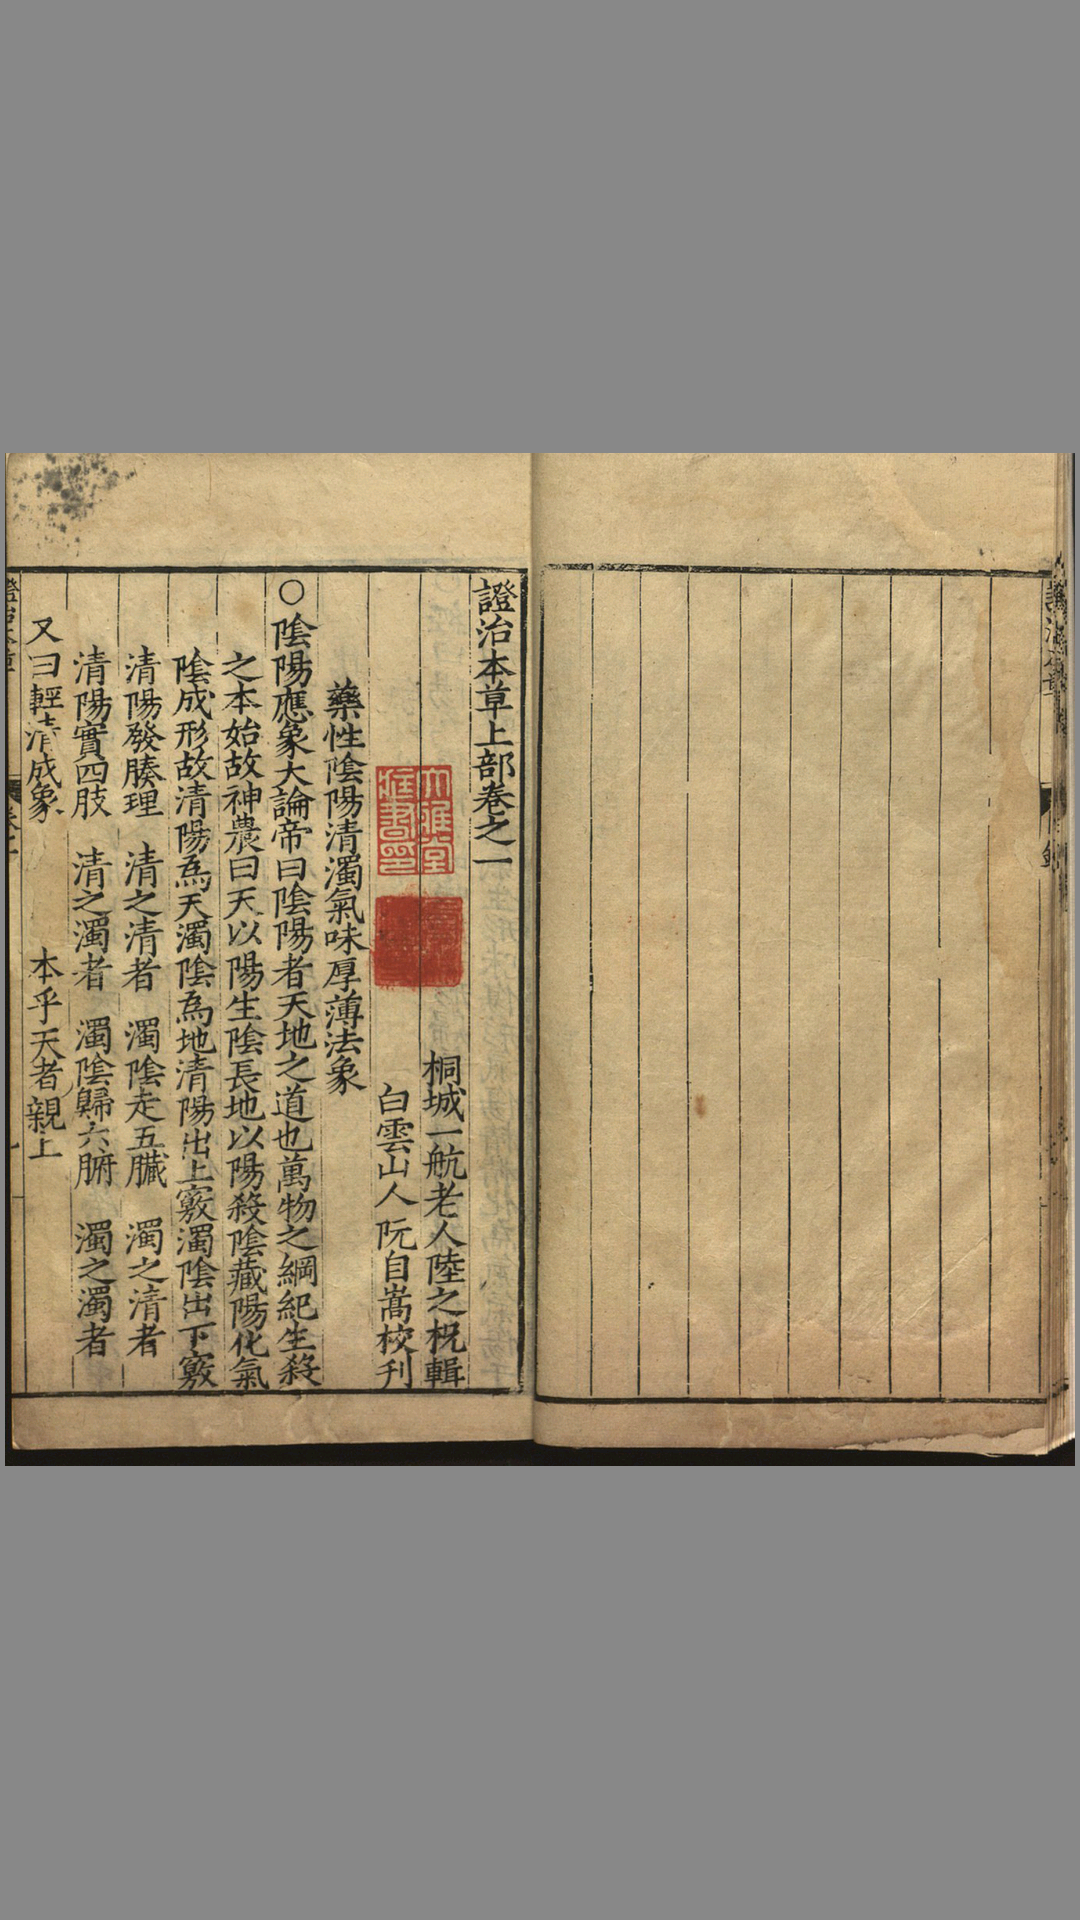 證治本草上部卷之一
桐城一航老人陸之柷輯
白雲山人阮自嵩校刊
大雅堂
書印
藥性陰陽清濁氣味厚薄法象
○陰陽應象大論帝曰陰陽者天地之道也萬物之綱紀生殺
之本始故神農曰天以陽生陰長地以陽殺陰藏陽化氣
陰成形故清陽為天濁陰為地清陽出上竅濁陰出下竅
清陽發腠理 清之清者 濁陰走五臟 濁之清者
清陽實四肢 清之濁者 濁陰歸六腑 濁之濁者
又曰輕清成象 本乎天者親上